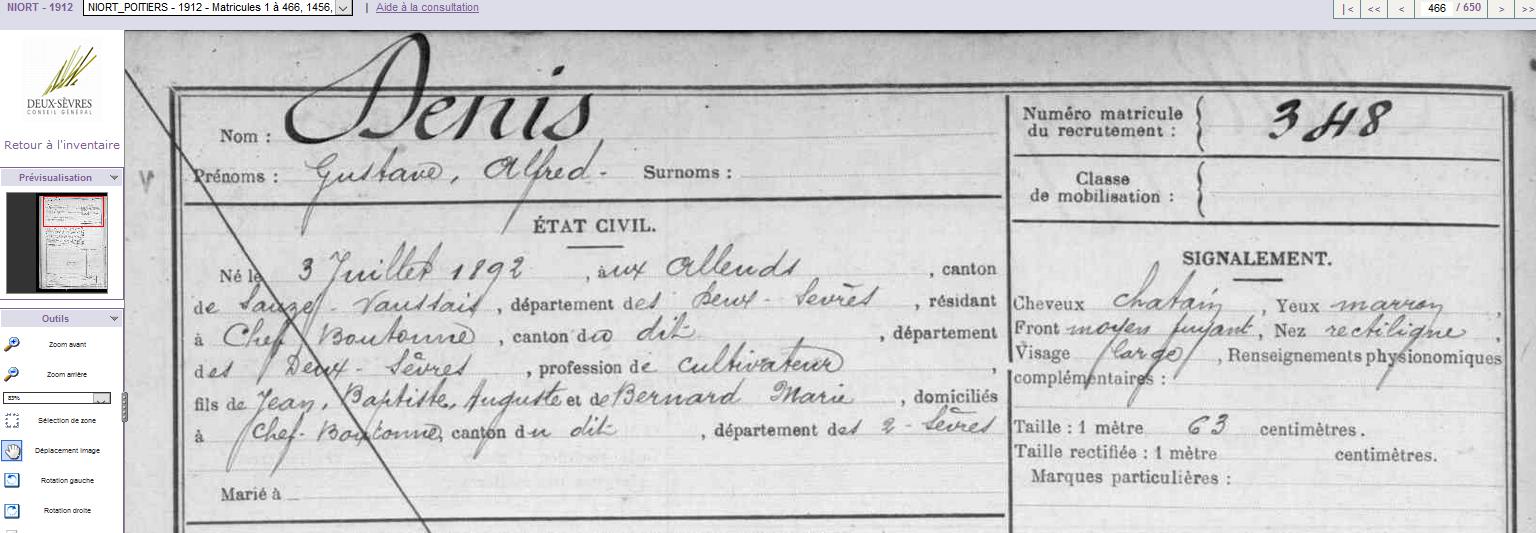 NIORT - 1912
NIORT_POITIERS - 1912 - Matricules 1 à 466, 1456,
| Aide à la consultation
|< << < 466 / 650 > >>
DEUX-SÈVRES
CONSEIL GÉNÉRAL
Retour à l'inventaire
Prévisualisation
Outils
Zoom avant
Zoom arrière
83%
Sélection de zone
Déplacement image
Rotation gauche
Rotation droite
Nom : Denis
Prénoms : Gustave, Alfred. Surnoms :
ÉTAT CIVIL.
Né le 3 Juillet 1892, aux Alleuds, canton
de Sauzé-Vaussais, département des Deux-Sèvres, résidant
à Chef Boutonne, canton du dit, département
des Deux-Sèvres, profession de cultivateur,
fils de Jean, Baptiste, Auguste et de Bernard Marie, domiciliés
à Chef-Boutonne, canton du dit, département des 2-Sèvres
Marié à
Numéro matricule
du recrutement : 348
Classe
de mobilisation :
SIGNALEMENT.
Cheveux chatain, Yeux marron,
Front moyen fuyant, Nez rectiligne,
Visage large, Renseignements physionomiques
complémentaires :
Taille : 1 mètre 63 centimètres.
Taille rectifiée : 1 mètre centimètres.
Marques particulières :